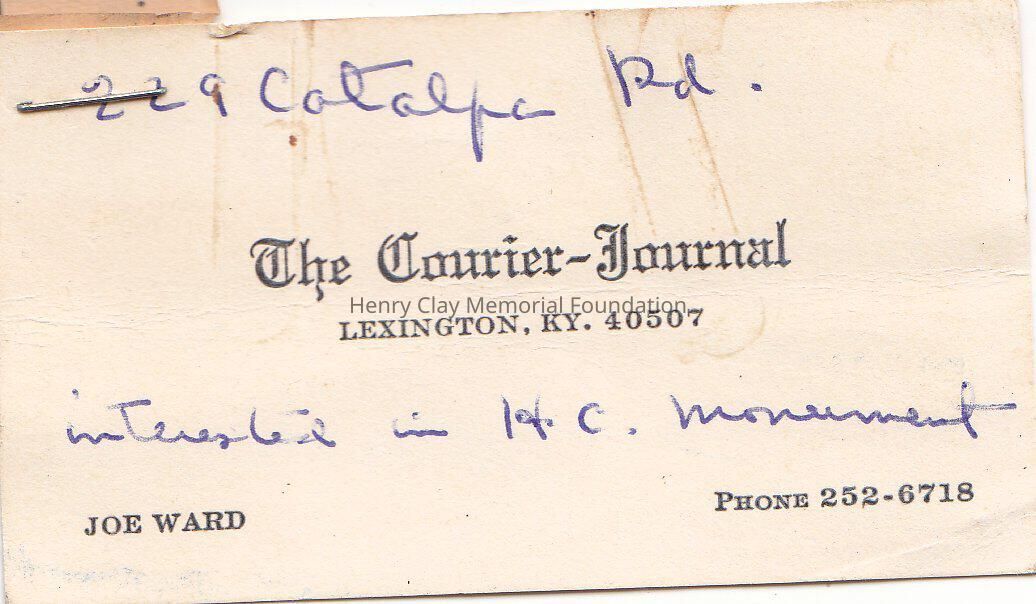 229 Catalpa Rd.
The Courier-Journal
Henry Clay Memorial Foundation
LEXINGTON, KY. 40507
interested in H.C. monument
JOE WARD
PHONE 252-6718